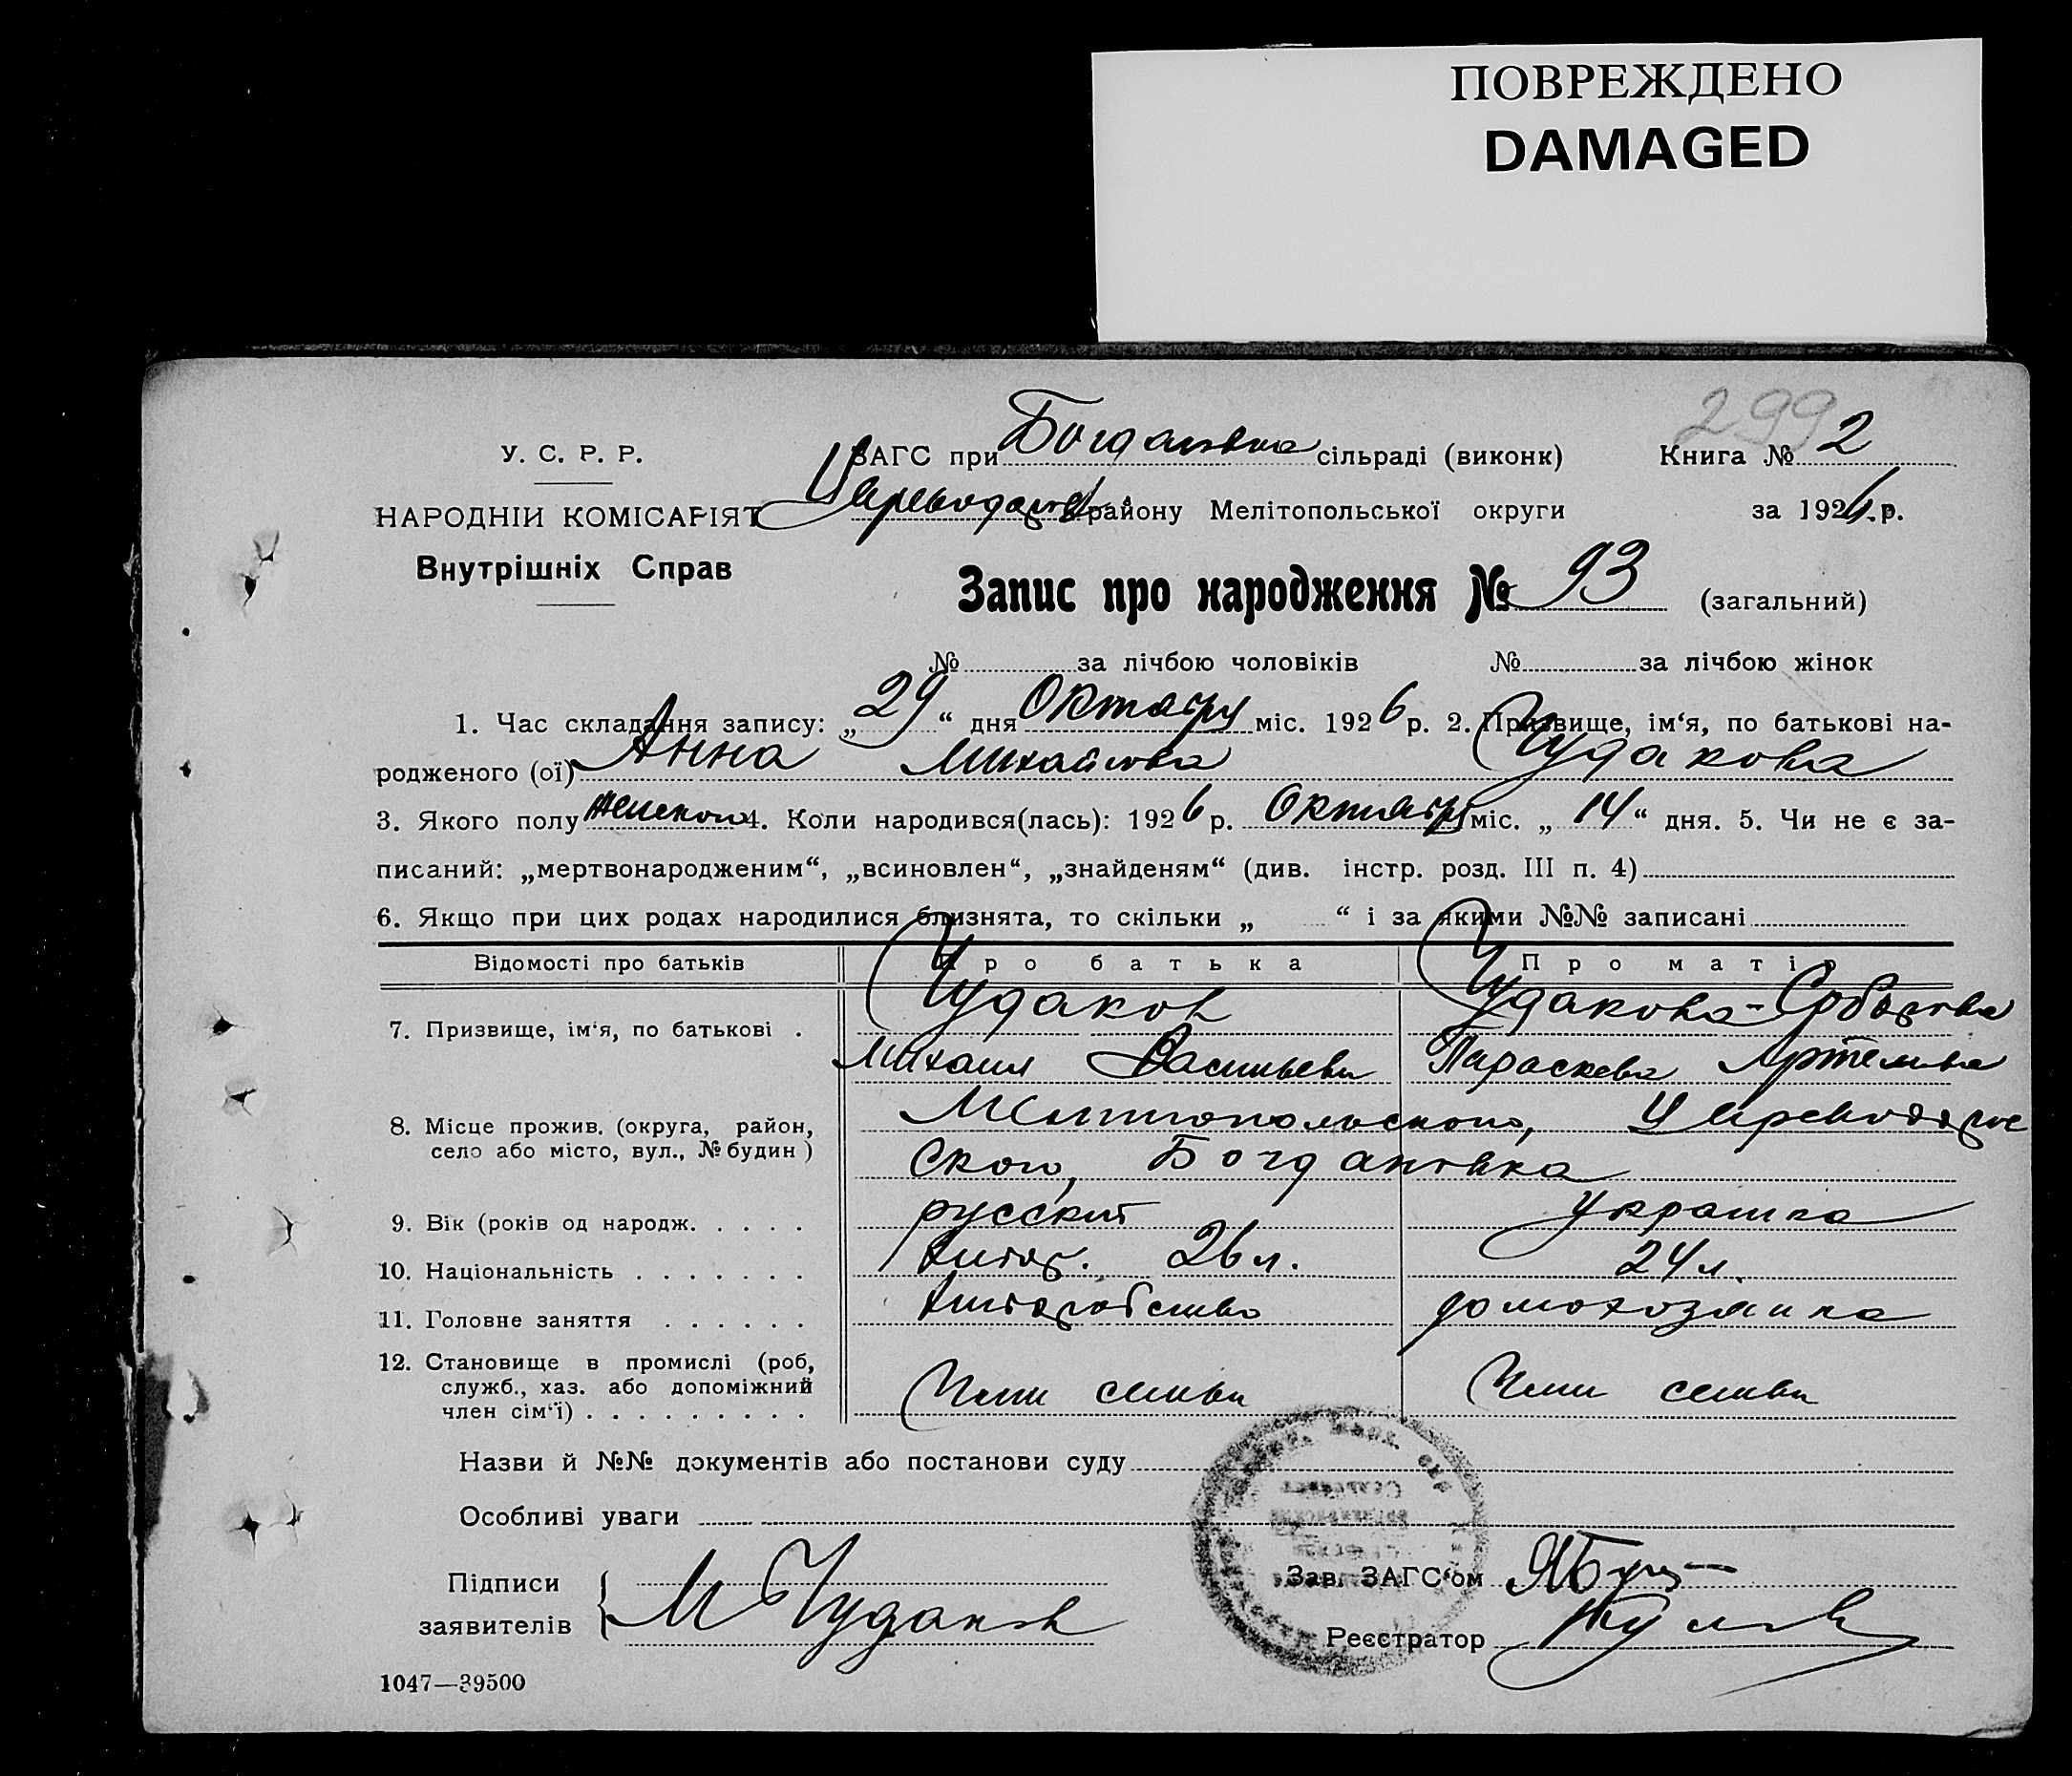 ПОВРЕЖДЕНО
DAMAGED
299
У. С. Р. Р.
ЗАГС при Богдановка сільраді (виконк)
Книга № 2
району Мелітопольської округи
за 1926 р.
НАРОДНІЙ КОМІСАРІЯТ
Внутрішніх Справ
Запис про народження № 93 (загальний)
№ за лічбою чоловіків № за лічбою жінок
1. Час складання запису: „29“ дня Октября міс. 1926 р. 2. Призвище, ім‘я, по батькові на-
родженого (ої) Анна Михайлова Чудакова
3. Якого полу женского 4. Коли народився(лась): 1926 р. Октября міс. „14“ дня. 5. Чи не є за-
писаний: „мертвонародженим“, „всиновлен“, „знайденям“ (див. інстр. розд. III п. 4)
6. Якщо при цих родах народилися близнята, то скільки „ “ і за якими №№ записані
Відомості про батьків Про батька Про матір
7. Призвище, ім‘я, по батькові . Чудаков Чудакова-
Михаил Васильевич Параскева Артемовна
8. Місце прожив. (округа, район, Мелитопольского,
село або місто, вул., № будин) ского, Богдановка
9. Вік (років од народж. . . . . русский украинка
10. Національність . . . . . . . 26 л. 24 л.
11. Головне заняття . . . . . . домохозяика
12. Становище в промислі (роб,
служб., хаз. або допоміжний Член семьи Член семьи
член сім‘ї) . . . . . . . . .
Назви й №№ документів або постанови суду
Особливі уваги
Підписи
заявителів М Чудаков
Зав. ЗАГС‘ом
Реєстратор
1047—39500